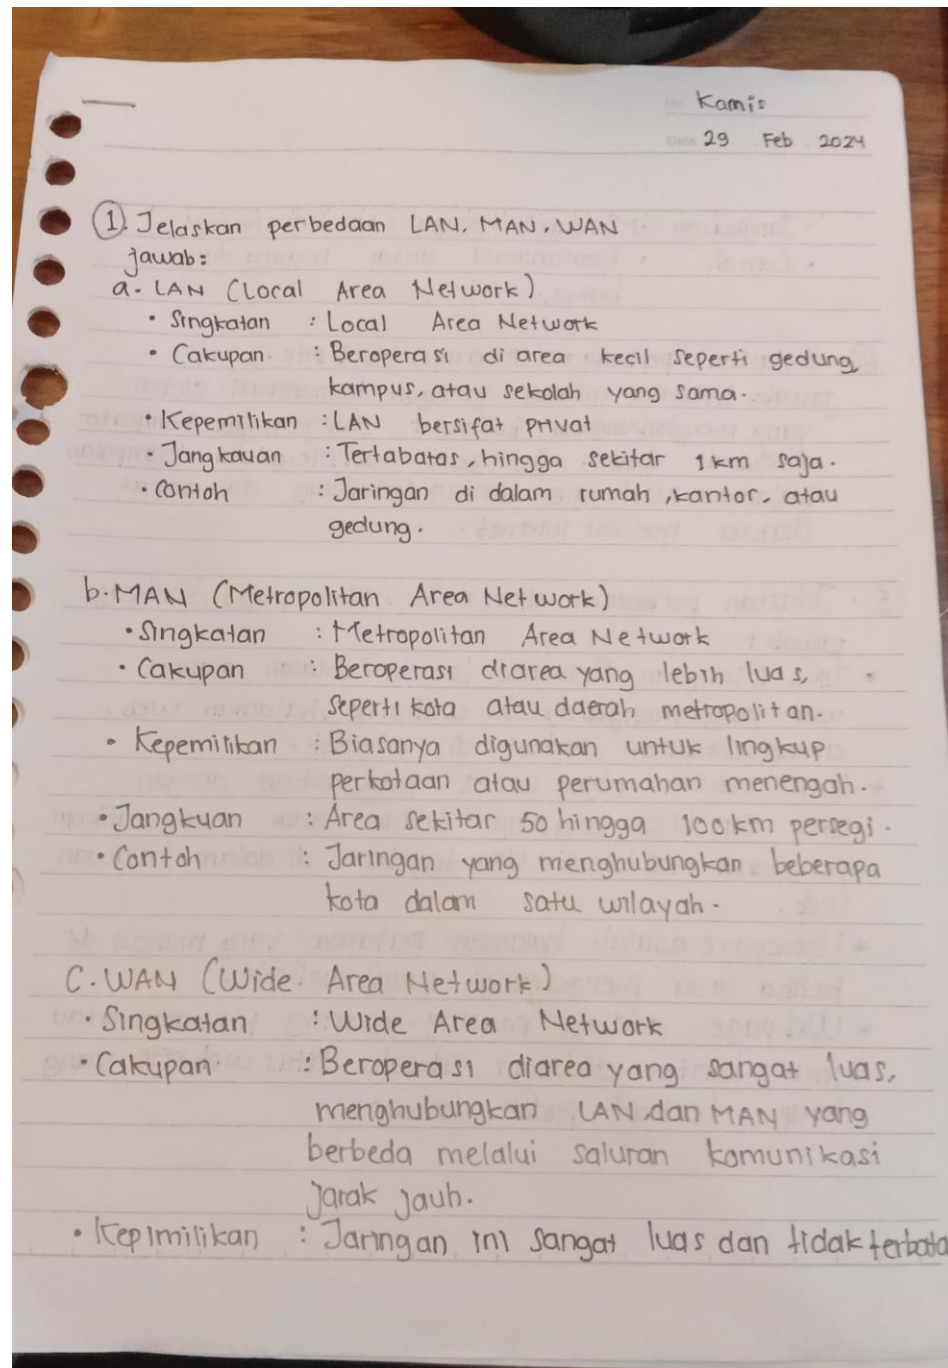 No. Kamis
Date 29 Feb 2024
1. Jelaskan perbedaan LAN, MAN, WAN
jawab:
a. LAN (Local Area Network)
• Singkatan : Local Area Network
• Cakupan : Beroperasi di area kecil seperti gedung,
kampus, atau sekolah yang sama.
• Kepemilikan : LAN bersifat privat
• Jangkauan : Tertabatas, hingga sekitar 1 km saja.
• Contoh : Jaringan di dalam rumah, kantor, atau
gedung.
b. MAN (Metropolitan Area Network)
• Singkatan : Metropolitan Area Network
• Cakupan : Beroperasi diarea yang lebih luas,
seperti kota atau daerah metropolitan.
• Kepemilikan : Biasanya digunakan untuk lingkup
perkotaan atau perumahan menengah.
• Jangkuan : Area sekitar 50 hingga 100 km persegi.
• Contoh : Jaringan yang menghubungkan beberapa
kota dalam satu wilayah.
C. WAN (Wide Area Network)
• Singkatan : Wide Area Network
• Cakupan : Beroperasi diarea yang sangat luas,
menghubungkan LAN dan MAN yang
berbeda melalui saluran komunikasi
jarak jauh.
• Kepimilikan : Jaringan ini sangat luas dan tidak terbata